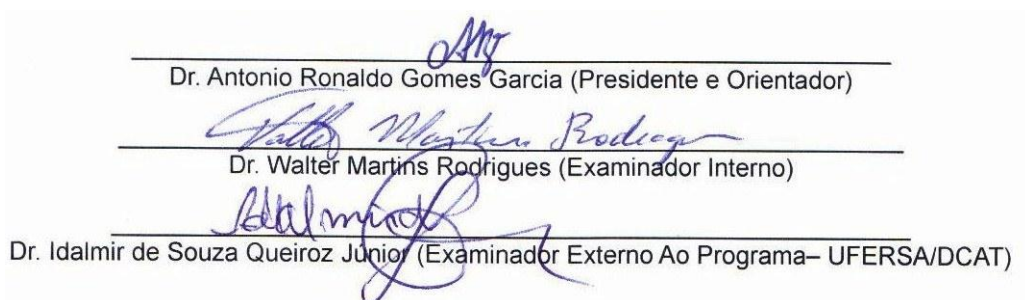 Dr. Antonio Ronaldo Gomes Garcia (Presidente e Orientador)
Martins Rodrigues
Dr. Walter Martins Rodrigues (Examinador Interno)
Idalmir
Dr. Idalmir de Souza Queiroz Júnior (Examinador Externo Ao Programa– UFERSA/DCAT)